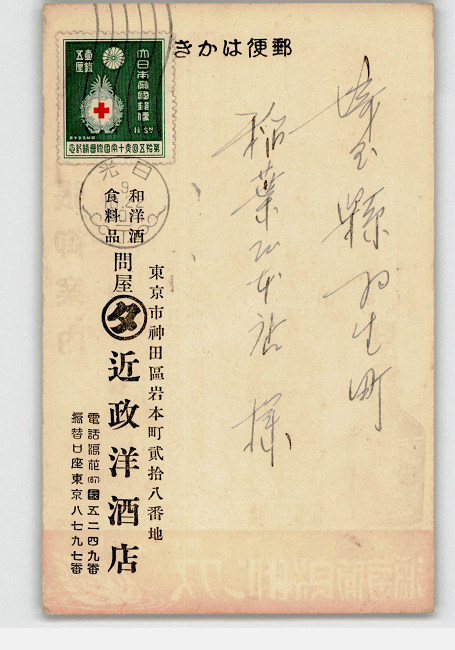 郵便はかき
大日本帝國郵便
壹銭五厘
1½ SN
第拾五回赤十字國際會議紀念
日光
9
22
埼玉縣羽生町
稲葉本店 様
和洋酒
食料品
問屋
東京市神田區岩本町貳拾八番地
近政洋酒店
電話浪花(67)五二四九番
振替口座東京八七九七番